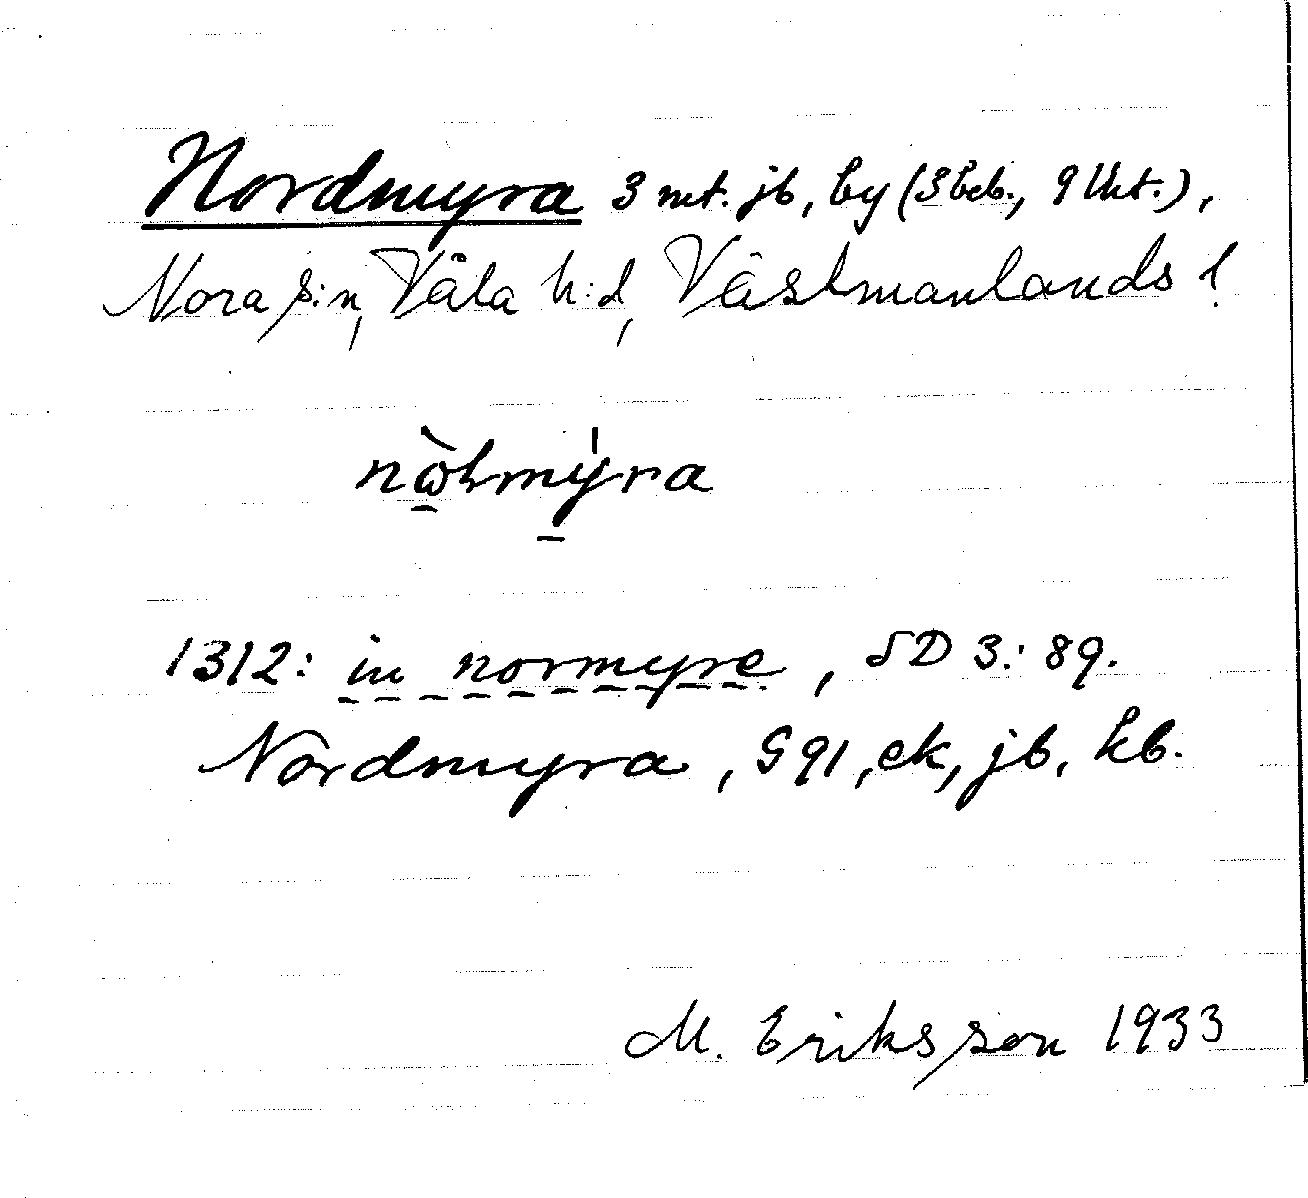 Nordmyra 3 mt. jb, by (3 beb., 9 lht.),
Nora s:n, Våla h:d, Västmanlands l.
1312: in normyre, SD 3: 89.
Nordmyra, G 91, ek, jb, kb.
M. Eriksson 1933